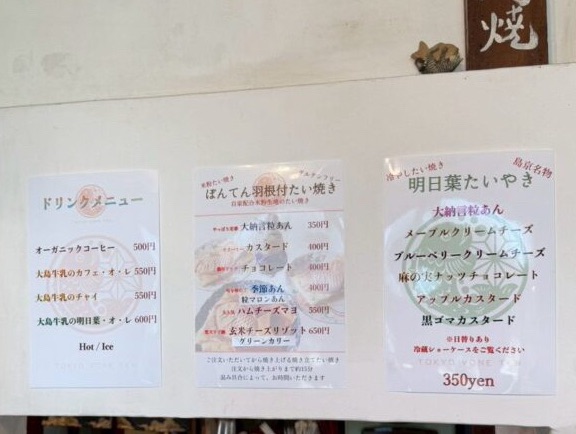 焼
ドリンクメニュー
オーガニックコーヒー 500円
大島牛乳のカフェ・オ・レ 550円
大島牛乳のチャイ 550円
大島牛乳の明日葉・オ・レ 600円
Hot / Ice
米粉たい焼き
グルテンフリー
ぼんてん羽根付たい焼き
自家配合米粉生地のたい焼き
大納言粒あん 350円
カスタード 400円
チョコレート 400円
季節あん 400円
粒マロンあん
ハムチーズマヨ 550円
玄米チーズリゾット 650円
グリーンカリー
ご注文いただいてから焼き上げる焼き立てたい焼き
注文から焼き上がりまで約15分
混み具合によって、お時間いただきます
冷やしたい焼き
島京名物
明日葉たいやき
大納言粒あん
メープルクリームチーズ
ブルーベリークリームチーズ
麻の実ナッツチョコレート
アップルカスタード
黒ゴマカスタード
※日替りあり
冷蔵ショーケースをご覧ください
350yen